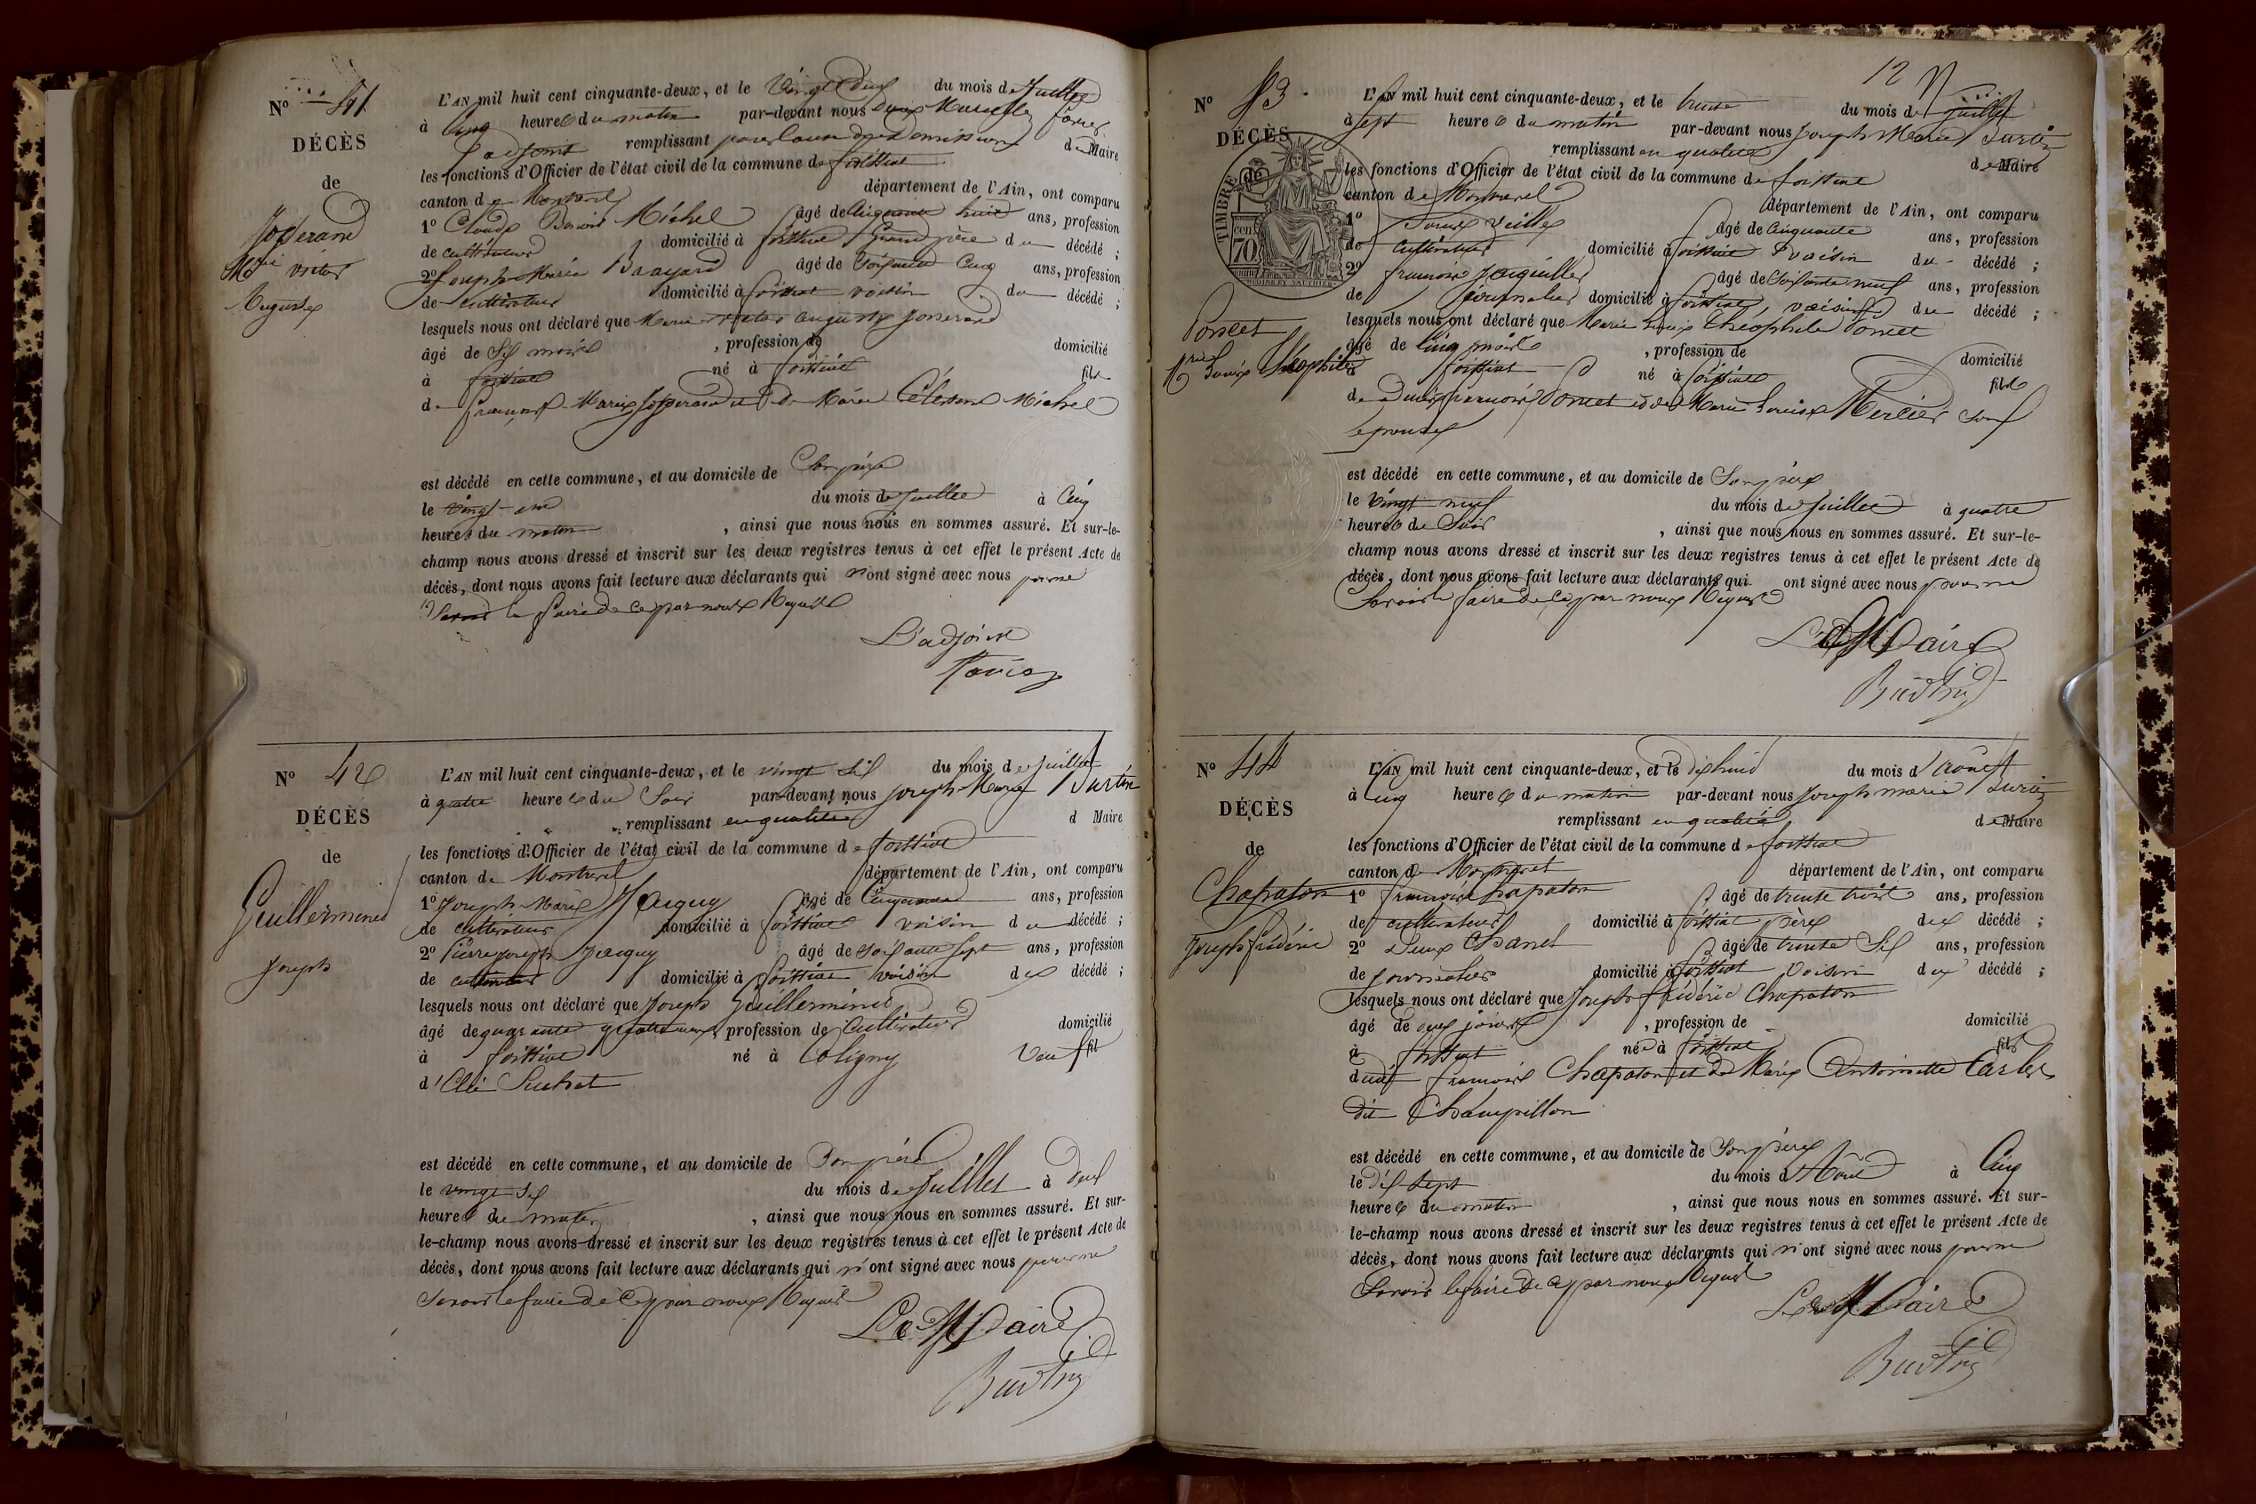 N° 41
DÉCÈS
de
Josserand
Mrie victor
Auguste
L'AN mil huit cent cinquante-deux, et le Vingt deux du mois de Juillet
à Cinq heures du matin par-devant nous
l'adjoint remplissant de Maire
les fonctions d'Officier de l'état civil de la commune de foissiat
canton de Montrevel département de l'Ain, ont comparu
1° Claude Benoit Michel âgé de Cinquante huit ans, profession
de cultivateur domicilié à foissiat Grand père du décédé ;
2° Joseph Marie Brayard âgé de Soixante Cinq ans, profession
de cultivateur domicilié à foissiat voisin du décédé ;
lesquels nous ont déclaré que Marie victor auguste Josserand
âgé de Six mois , profession de domicilié
à foissiat né à foissiat fils
de françois Marie Josserand et de Marie Célestine Michel
est décédé en cette commune, et au domicile de Son père
le vingt-un du mois de Juillet à Cinq
heures du matin , ainsi que nous nous en sommes assuré. Et sur-le-
champ nous avons dressé et inscrit sur les deux registres tenus à cet effet le présent Acte de
décès, dont nous avons fait lecture aux déclarants qui n'ont signé avec nous pour ne
Savoir le faire de ce par nous Requis
L'adjoint
N° 42
DÉCÈS
de
Guillerminet
Joseph
L'AN mil huit cent cinquante-deux, et le vingt Six du mois de Juillet
à quatre heures du Soir par-devant nous Joseph Marie
remplissant en qualité d Maire
les fonctions d'Officier de l'état civil de la commune de foissiat
canton de Montrevel département de l'Ain, ont comparu
1° Joseph Marie Jacquy âgé de Cinquante ans, profession
de cultivateur domicilié à foissiat voisin du décédé ;
2° Pierre Joseph Jacquy âgé de Soixante Sept ans, profession
de cultivateur domicilié à foissiat voisin du décédé ;
lesquels nous ont déclaré que Joseph Guillerminet
âgé de quarante quatre ans, profession de Cultivateur domicilié
à foissiat né à Coligny Veuf fil
d' Suchet
est décédé en cette commune, et au domicile de Son père
le vingt Six du mois de Juillet à deux
heures du matin , ainsi que nous nous en sommes assuré. Et sur-
le-champ nous avons dressé et inscrit sur les deux registres tenus à cet effet le présent Acte de
décès, dont nous avons fait lecture aux déclarants qui n'ont signé avec nous pour ne
Savoir le faire de ce par nous Requis
Le Maire
12
N° 43
DÉCÈS
de
TIMBRE
70
Poncet
Mrie Louis Théophile
L'AN mil huit cent cinquante-deux, et le trente du mois de Juillet
à Sept heures du matin par-devant nous Joseph Marie
remplissant en qualité de Maire
les fonctions d'Officier de l'état civil de la commune de foissiat
canton de Montrevel département de l'Ain, ont comparu
1° âgé de Cinquante ans, profession
de Cultivateur domicilié à foissiat voisin du décédé ;
2° françois âgé de Soixante neuf ans, profession
de Journalier domicilié à foissiat, voisin du décédé ;
lesquels nous ont déclaré que Marie Louis Théophile Poncet
âgé de Cinq mois , profession de domicilié
à foissiat né à foissiat fils
de françois Poncet et de Marie Louise Mercier Son
épouse
est décédé en cette commune, et au domicile de Son père
le Vingt neuf du mois de Juillet à quatre
heures du Soir , ainsi que nous nous en sommes assuré. Et sur-le-
champ nous avons dressé et inscrit sur les deux registres tenus à cet effet le présent Acte de
décès, dont nous avons fait lecture aux déclarants qui ont signé avec nous pour ne
Savoir le faire de ce par nous Requis
Le Maire
N° 44
DÉCÈS
de
Chapaton
Joseph frédéric
L'AN mil huit cent cinquante-deux, et le dix huit du mois d'août
à Cinq heures du matin par-devant nous Joseph marie
remplissant en qualité de Maire
les fonctions d'Officier de l'état civil de la commune de foissiat
canton de Montrevel département de l'Ain, ont comparu
1° françois Chapaton âgé de trente trois ans, profession
de cultivateur domicilié à foissiat père du décédé ;
2° Chanel âgé de trente Six ans, profession
de journalier domicilié à foissiat voisin du décédé ;
lesquels nous ont déclaré que Joseph frédéric Chapaton
âgé de jours , profession de domicilié
à foissiat né à foissiat fils
dudit françois Chapaton et de Marie Antoinette
dit Champillon
est décédé en cette commune, et au domicile de Son père
le dix Sept du mois d'Août à Cinq
heures du matin , ainsi que nous nous en sommes assuré. Et sur-
le-champ nous avons dressé et inscrit sur les deux registres tenus à cet effet le présent Acte de
décès, dont nous avons fait lecture aux déclarants qui n'ont signé avec nous pour ne
Savoir le faire de ce par nous Requis
Le Maire